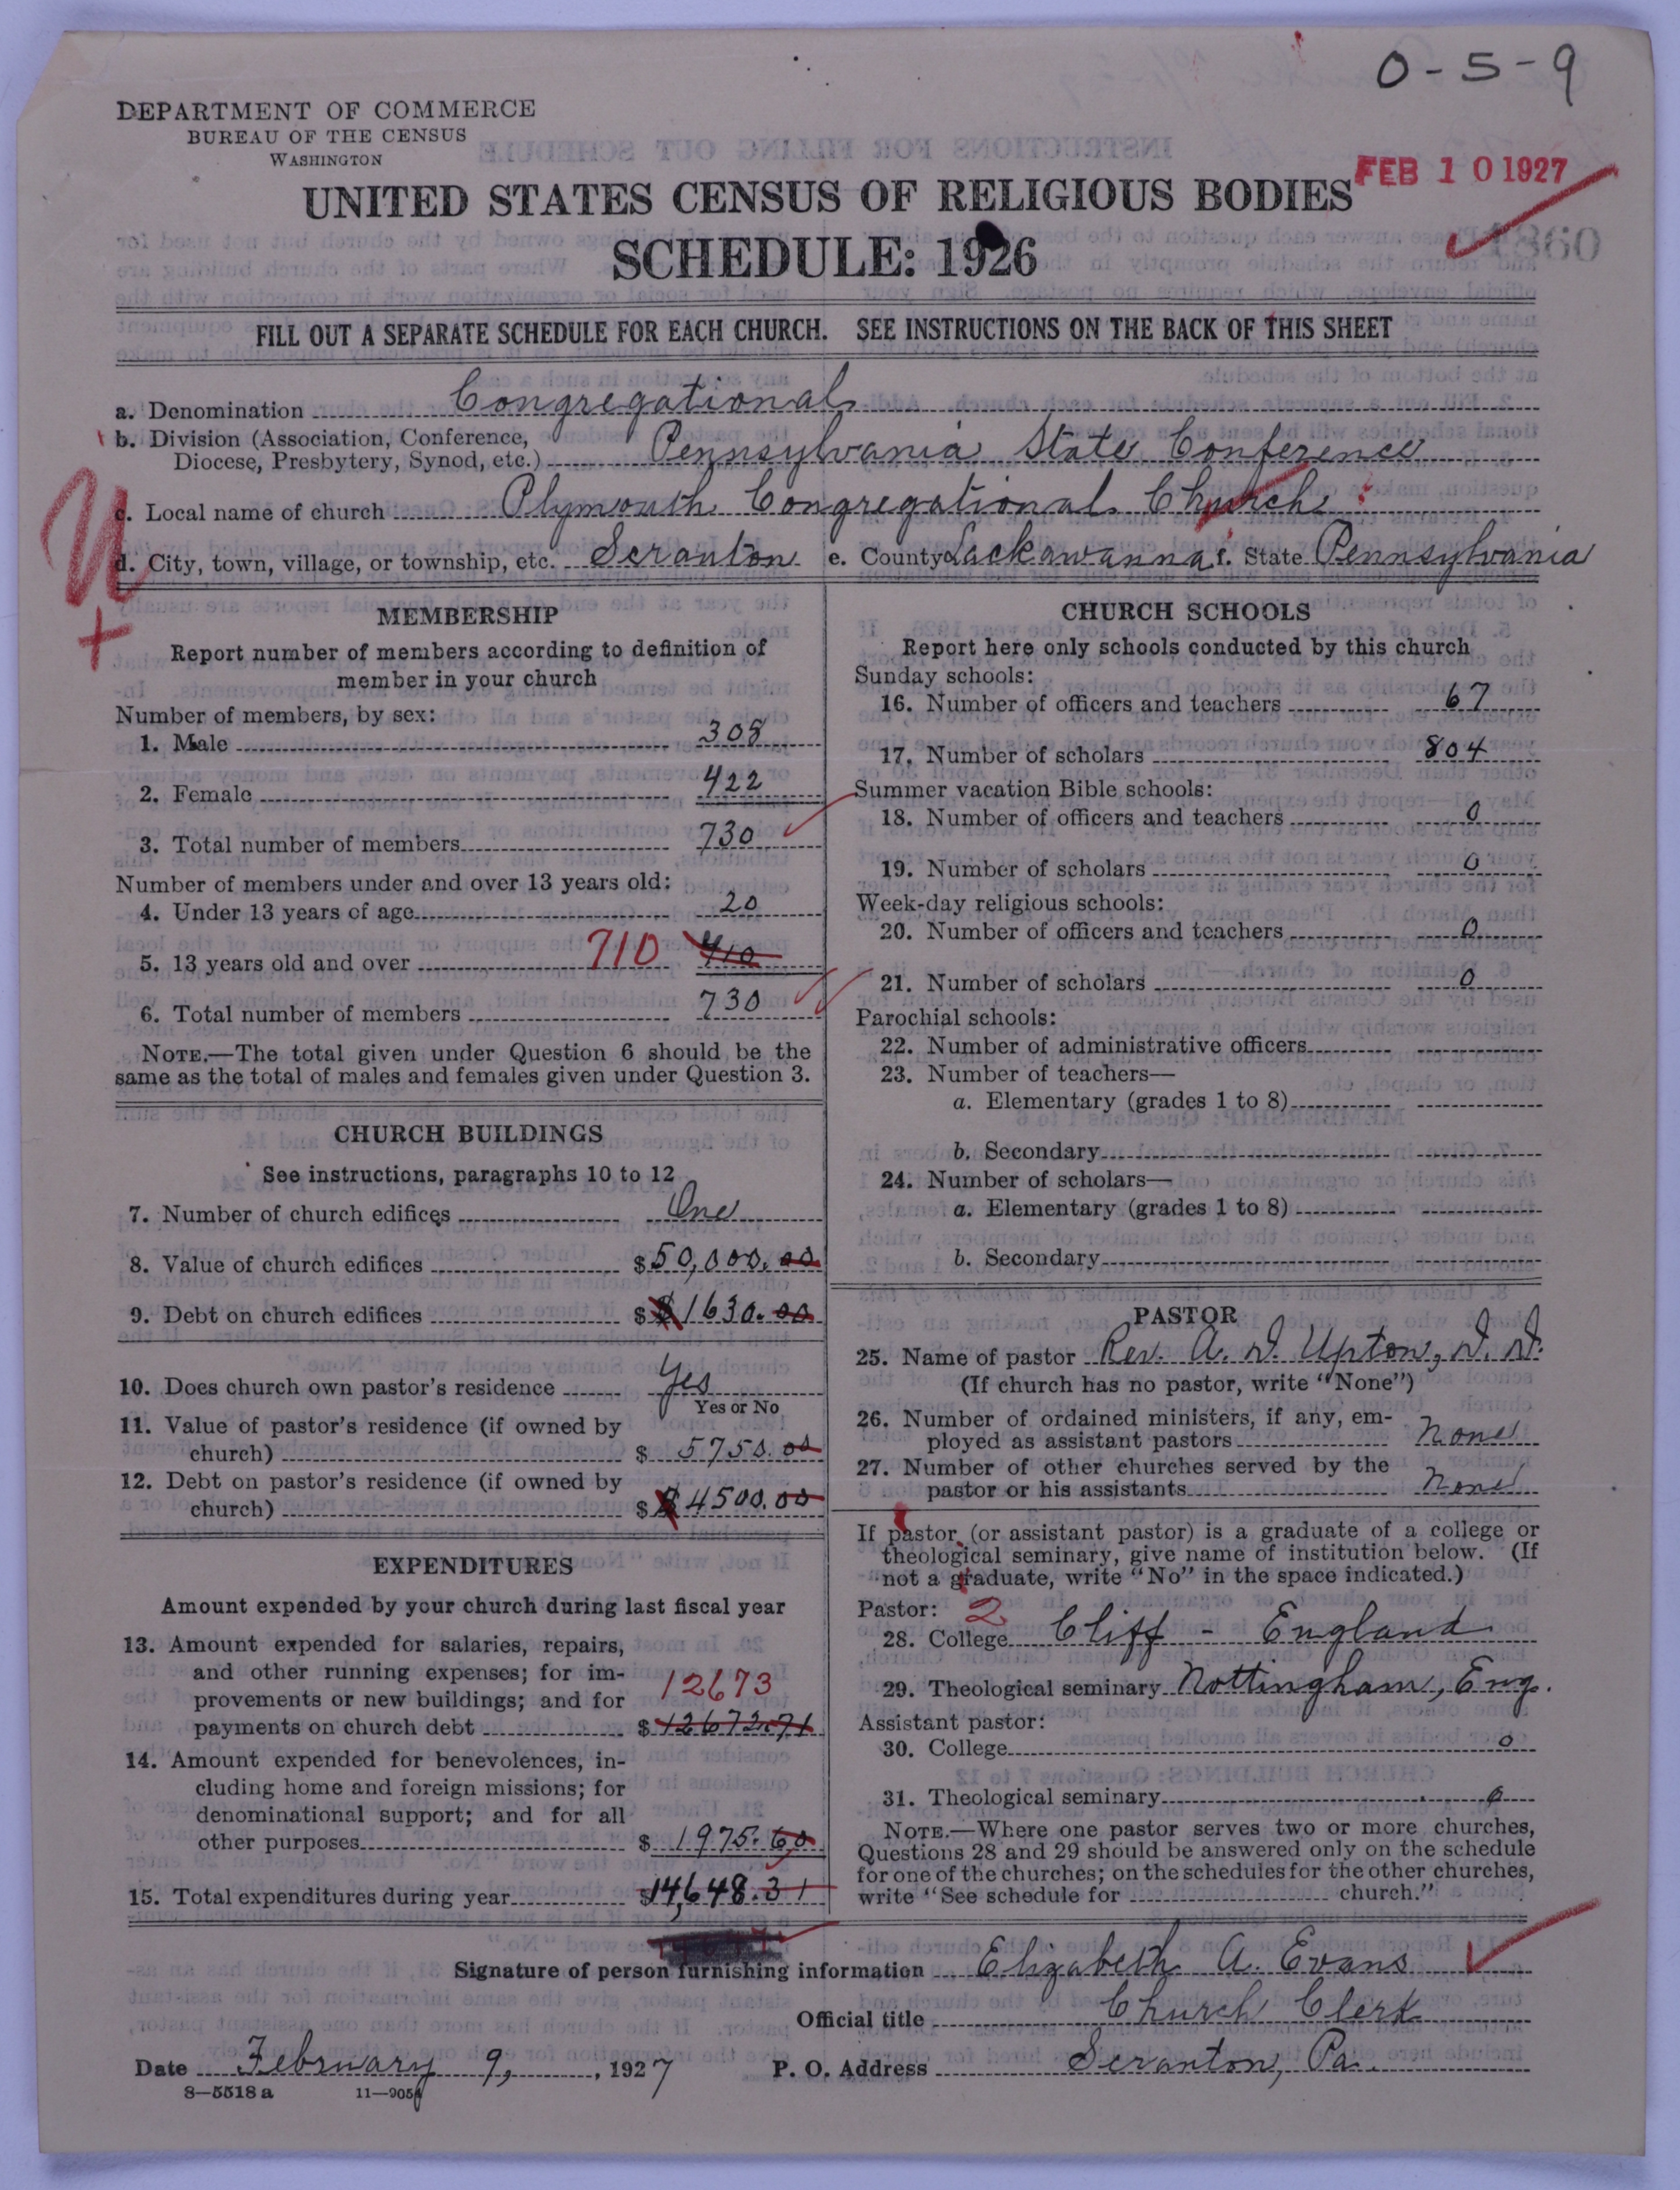 0-5-9
DEPARTMENT OF COMMERCE
BUREAU OF THE CENSUS
WASHINGTON
FEB 10 1927
UNITED STATES CENSUS OF RELIGIOUS BODIES
SCHEDULE: 1926
1860
FILL OUT A SEPARATE SCHEDULE FOR EACH CHURCH. SEE INSTRUCTIONS ON THE BACK OF THIS SHEET
a. Denomination Congregational
b. Division (Association, Conference,
Diocese, Presbytery, Synod, etc.) Pennsylvania State Conference
c. Local name of church Plymouth Congregational Church
d. City, town, village, or township, etc. Scranton e. County Lackawanna f. State Pennsylvania
MEMBERSHIP
Report number of members according to definition of
member in your church
Number of members, by sex:
1. Male 308
2. Female 422
3. Total number of members 730
Number of members under and over 13 years old:
4. Under 13 years of age 20
5. 13 years old and over 710 410
6. Total number of members 730
NOTE.—The total given under Question 6 should be the
same as the total of males and females given under Question 3.
CHURCH BUILDINGS
See instructions, paragraphs 10 to 12
7. Number of church edifices One
8. Value of church edifices $50,000.00
9. Debt on church edifices $ $1630.00
10. Does church own pastor's residence Yes
Yes or No
11. Value of pastor's residence (if owned by
church) $ 5750.00
12. Debt on pastor's residence (if owned by
church) $ $4500.00
EXPENDITURES
Amount expended by your church during last fiscal year
13. Amount expended for salaries, repairs,
and other running expenses; for im-
provements or new buildings; and for 12673
payments on church debt $ 12672.71
14. Amount expended for benevolences, in-
cluding home and foreign missions; for
denominational support; and for all
other purposes $ 1975.60
15. Total expenditures during year $14,648.31
CHURCH SCHOOLS
Report here only schools conducted by this church
Sunday schools:
16. Number of officers and teachers 67
17. Number of scholars 804
Summer vacation Bible schools:
18. Number of officers and teachers 0
19. Number of scholars 0
Week-day religious schools:
20. Number of officers and teachers 0
21. Number of scholars 0
Parochial schools:
22. Number of administrative officers
23. Number of teachers—
a. Elementary (grades 1 to 8)
b. Secondary
24. Number of scholars—
a. Elementary (grades 1 to 8)
b. Secondary
PASTOR
25. Name of pastor Rev. A. D. Upton, D. D.
(If church has no pastor, write "None")
26. Number of ordained ministers, if any, em-
ployed as assistant pastors None
27. Number of other churches served by the
pastor or his assistants None
If pastor (or assistant pastor) is a graduate of a college or
theological seminary, give name of institution below. (If
not a graduate, write "No" in the space indicated.)
Pastor: 2
28. College Cliff - England
29. Theological seminary Nottingham, Eng.
Assistant pastor:
30. College 0
31. Theological seminary 0
NOTE.—Where one pastor serves two or more churches,
Questions 28 and 29 should be answered only on the schedule
for one of the churches; on the schedules for the other churches,
write "See schedule for church."
Signature of person furnishing information Elizabeth A. Evans
Official title Church Clerk
Date February 9, 1927 P. O. Address Scranton, Pa.
8—5518 a 11—9054